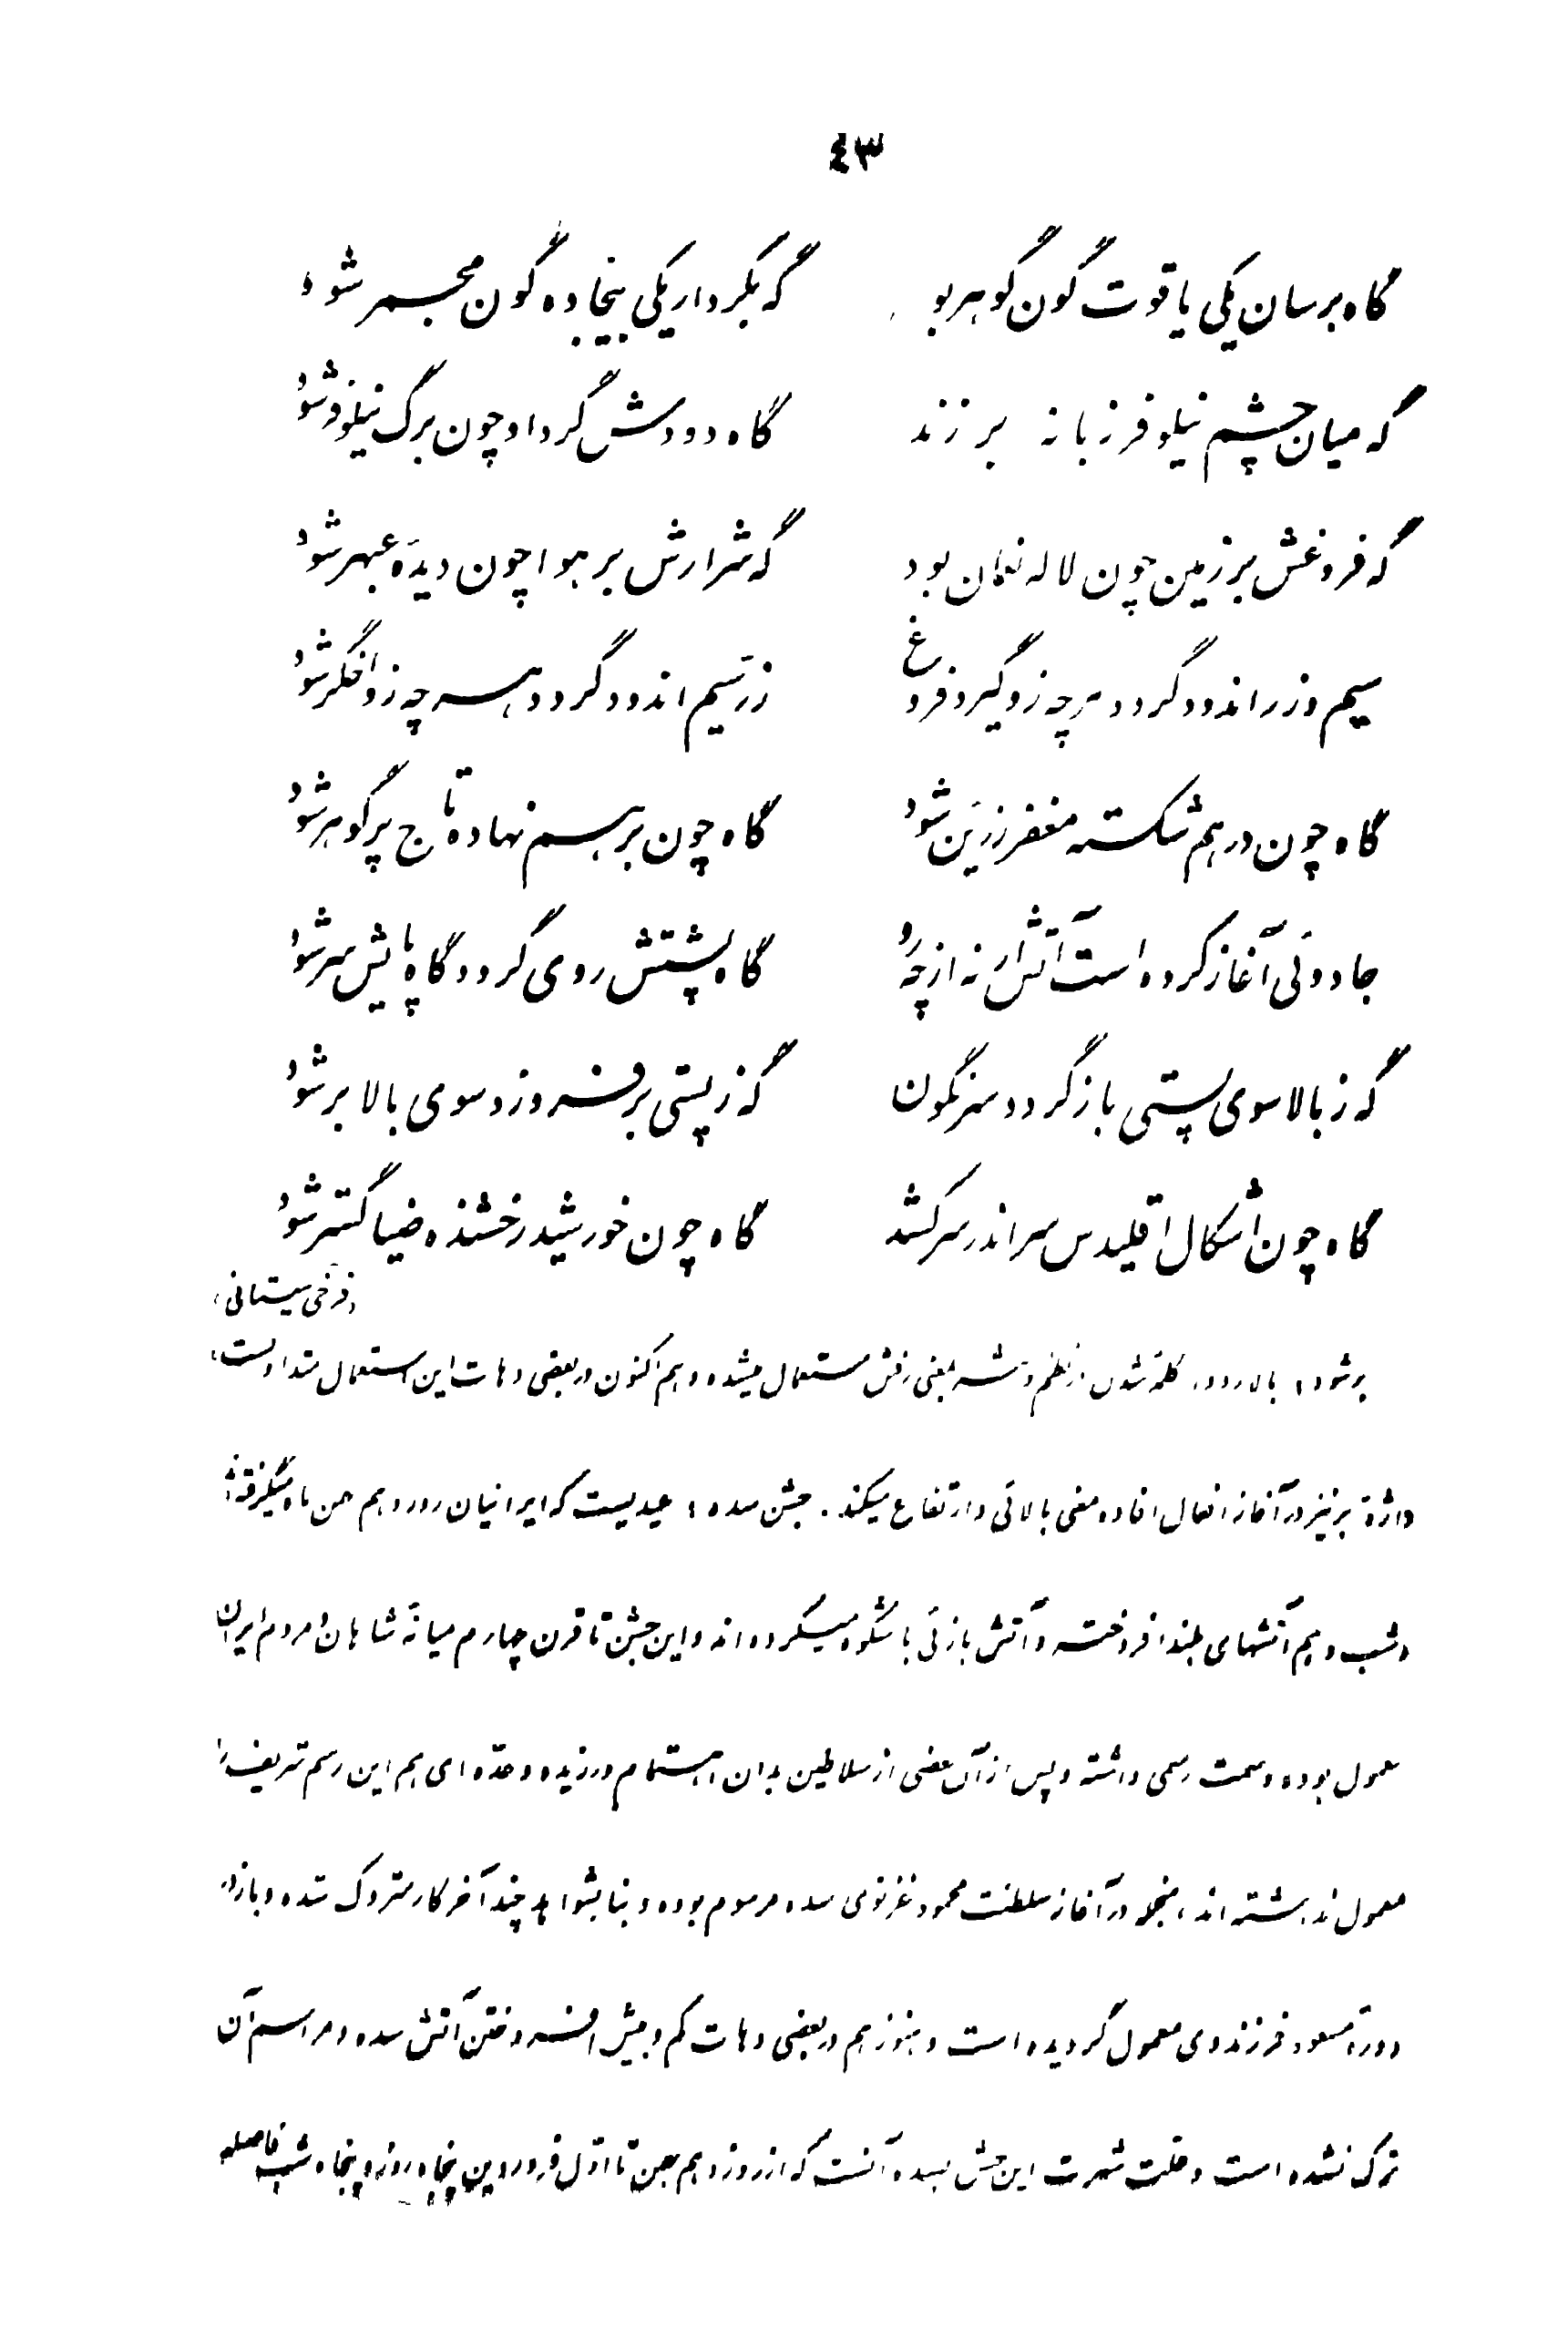 ٤٣
گاه برسان یکی یاقوت گون گوهر بو گه بکردار یکی بیجاده گون مجمر شود
گه میان چشم نیلوفر زبانه بر زند گاه دودش گرد او چون برگ نیلوفر شود
گه فروغش بر زمین چون لاله نعمان بود گه شرارش بر هوا چون دیدهٔ عبهر شود
سیم زر اندود گردد هر چه زو گیرد فروغ زر سیم اندود گردد هر چه زو اخگر شود
گاه چون در هم شکسته مغفر زرین شود گاه چون بر هم نهاده تاج پر گوهر شود
جادوئی آغاز کرده است آتش ار نه از چه رو گاه پشتش روی گردد گاه پایش سر شود
گه ز بالا سوی پستی باز گردد سرنگون گه ز پستی بر فروزد سوی بالا بر شود
گاه چون اشکال اقلیدس سر اندر سر کشد گاه چون خورشید رخشنده ضیا گستر شود
«فرخی سیستانی»
بر شود : بالا رود ، کلمهٔ شدن در نظم و نثر بمعنی رفتن مستعمل میشده و هم اکنون در بعضی دهات این استعمال متداولست،
واژهٔ بر نیز در آغاز افعال افاده معنی بالائی و ارتفاع میکند . جشن سده : عیدیست که ایرانیان روز دهم بهمن ماه میگرفته‌اند
و شب دهم آتشهای بلند افروخته و آتش بازئی با شکوه میکرده‌اند و این جشن تا قرن چهارم میانهٔ شاهان و مردم ایران
معمول بوده و سمت رسمی داشته و پس از آن بعضی از سلاطین بدان اهتمام ورزیده و عدّه‌ای هم این رسم شریف را
معمول نداشته‌اند ، در آغاز سلطنت محمود غزنوی سده مرسوم بوده و بنا بشواهد چند آخر کار متروک شده و باز در
دورهٔ مسعود فرزند وی معمول گردیده است و هنوز هم در بعضی دهات کم و بیش افروختن آتش سده و مراسم آن
ترک نشده است و علت شهرت این جشن بسده آنست که از روز دهم بهمن تا اوّل فروردین پنجاه روز و پنجاه شب فاصله